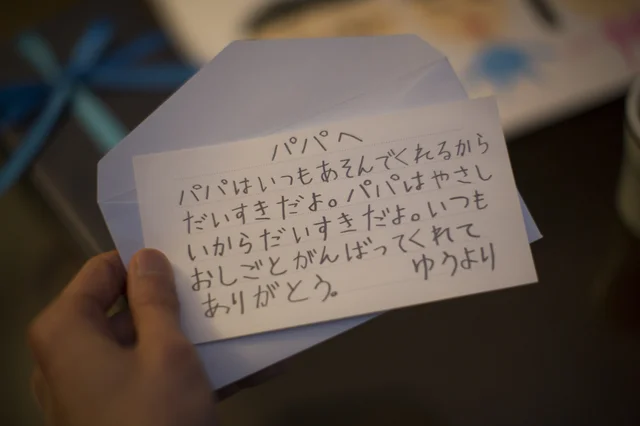 パパへ
パパはいつもあそんでくれるから
だいすきだよ。パパはやさし
いからだいすきだよ。いつも
おしごとがんばってくれて
ありがとう。 ゆうより